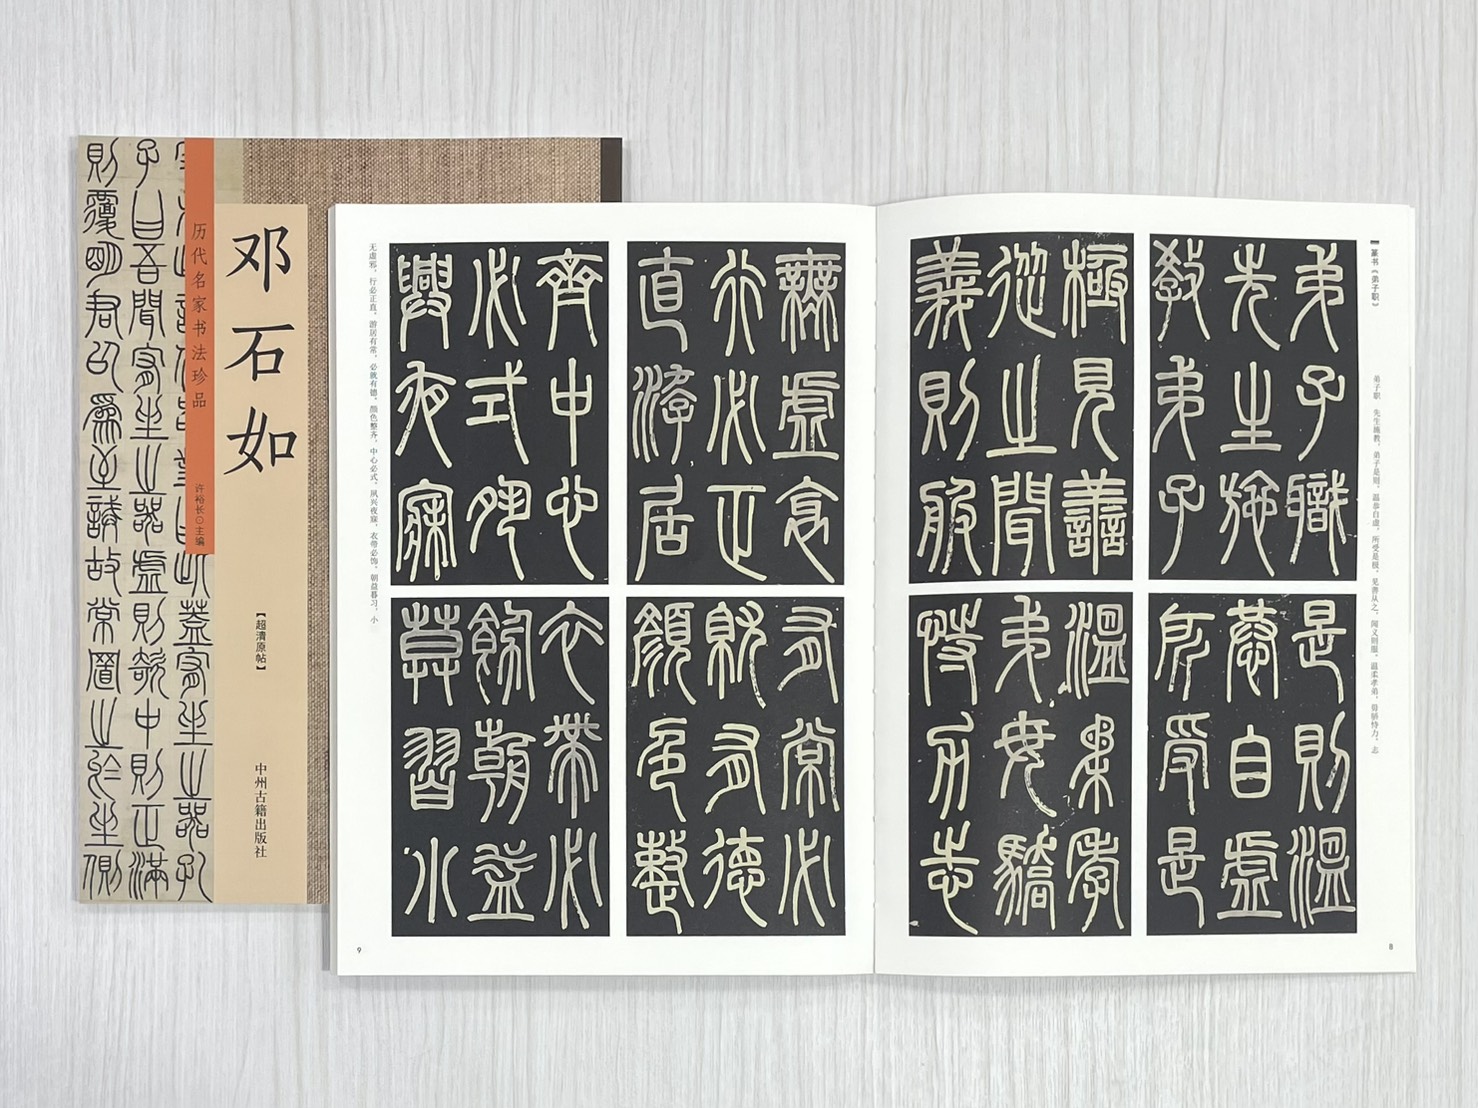 历代名家书法珍品
许裕长◎主编
邓石如
【超清原帖】
中州古籍出版社
蓋宥坐之器孔
子曰吾聞宥坐之器虛則欹中則正滿
則覆明君以爲至誡故常置之於坐側
篆书《弟子职》
弟子职　先生施教，弟子是则。温恭自虚，所受是极。见善从之，闻义则服。温柔孝弟，毋骄恃力。志
弟子職
先生施
教弟子
是則溫
恭自虛
所受是
極見善
從之聞
義則服
溫柔孝
弟毋驕
恃力志
8
無虛邪
行必正
直游居
有常必
就有德
顏色整
齊中心
必式夙
興夜寐
衣帶必
飾朝益
莫習小
无虚邪，行必正直。游居有常，必就有德。颜色整齐，中心必式。夙兴夜寐，衣带必饰，朝益暮习，小
9